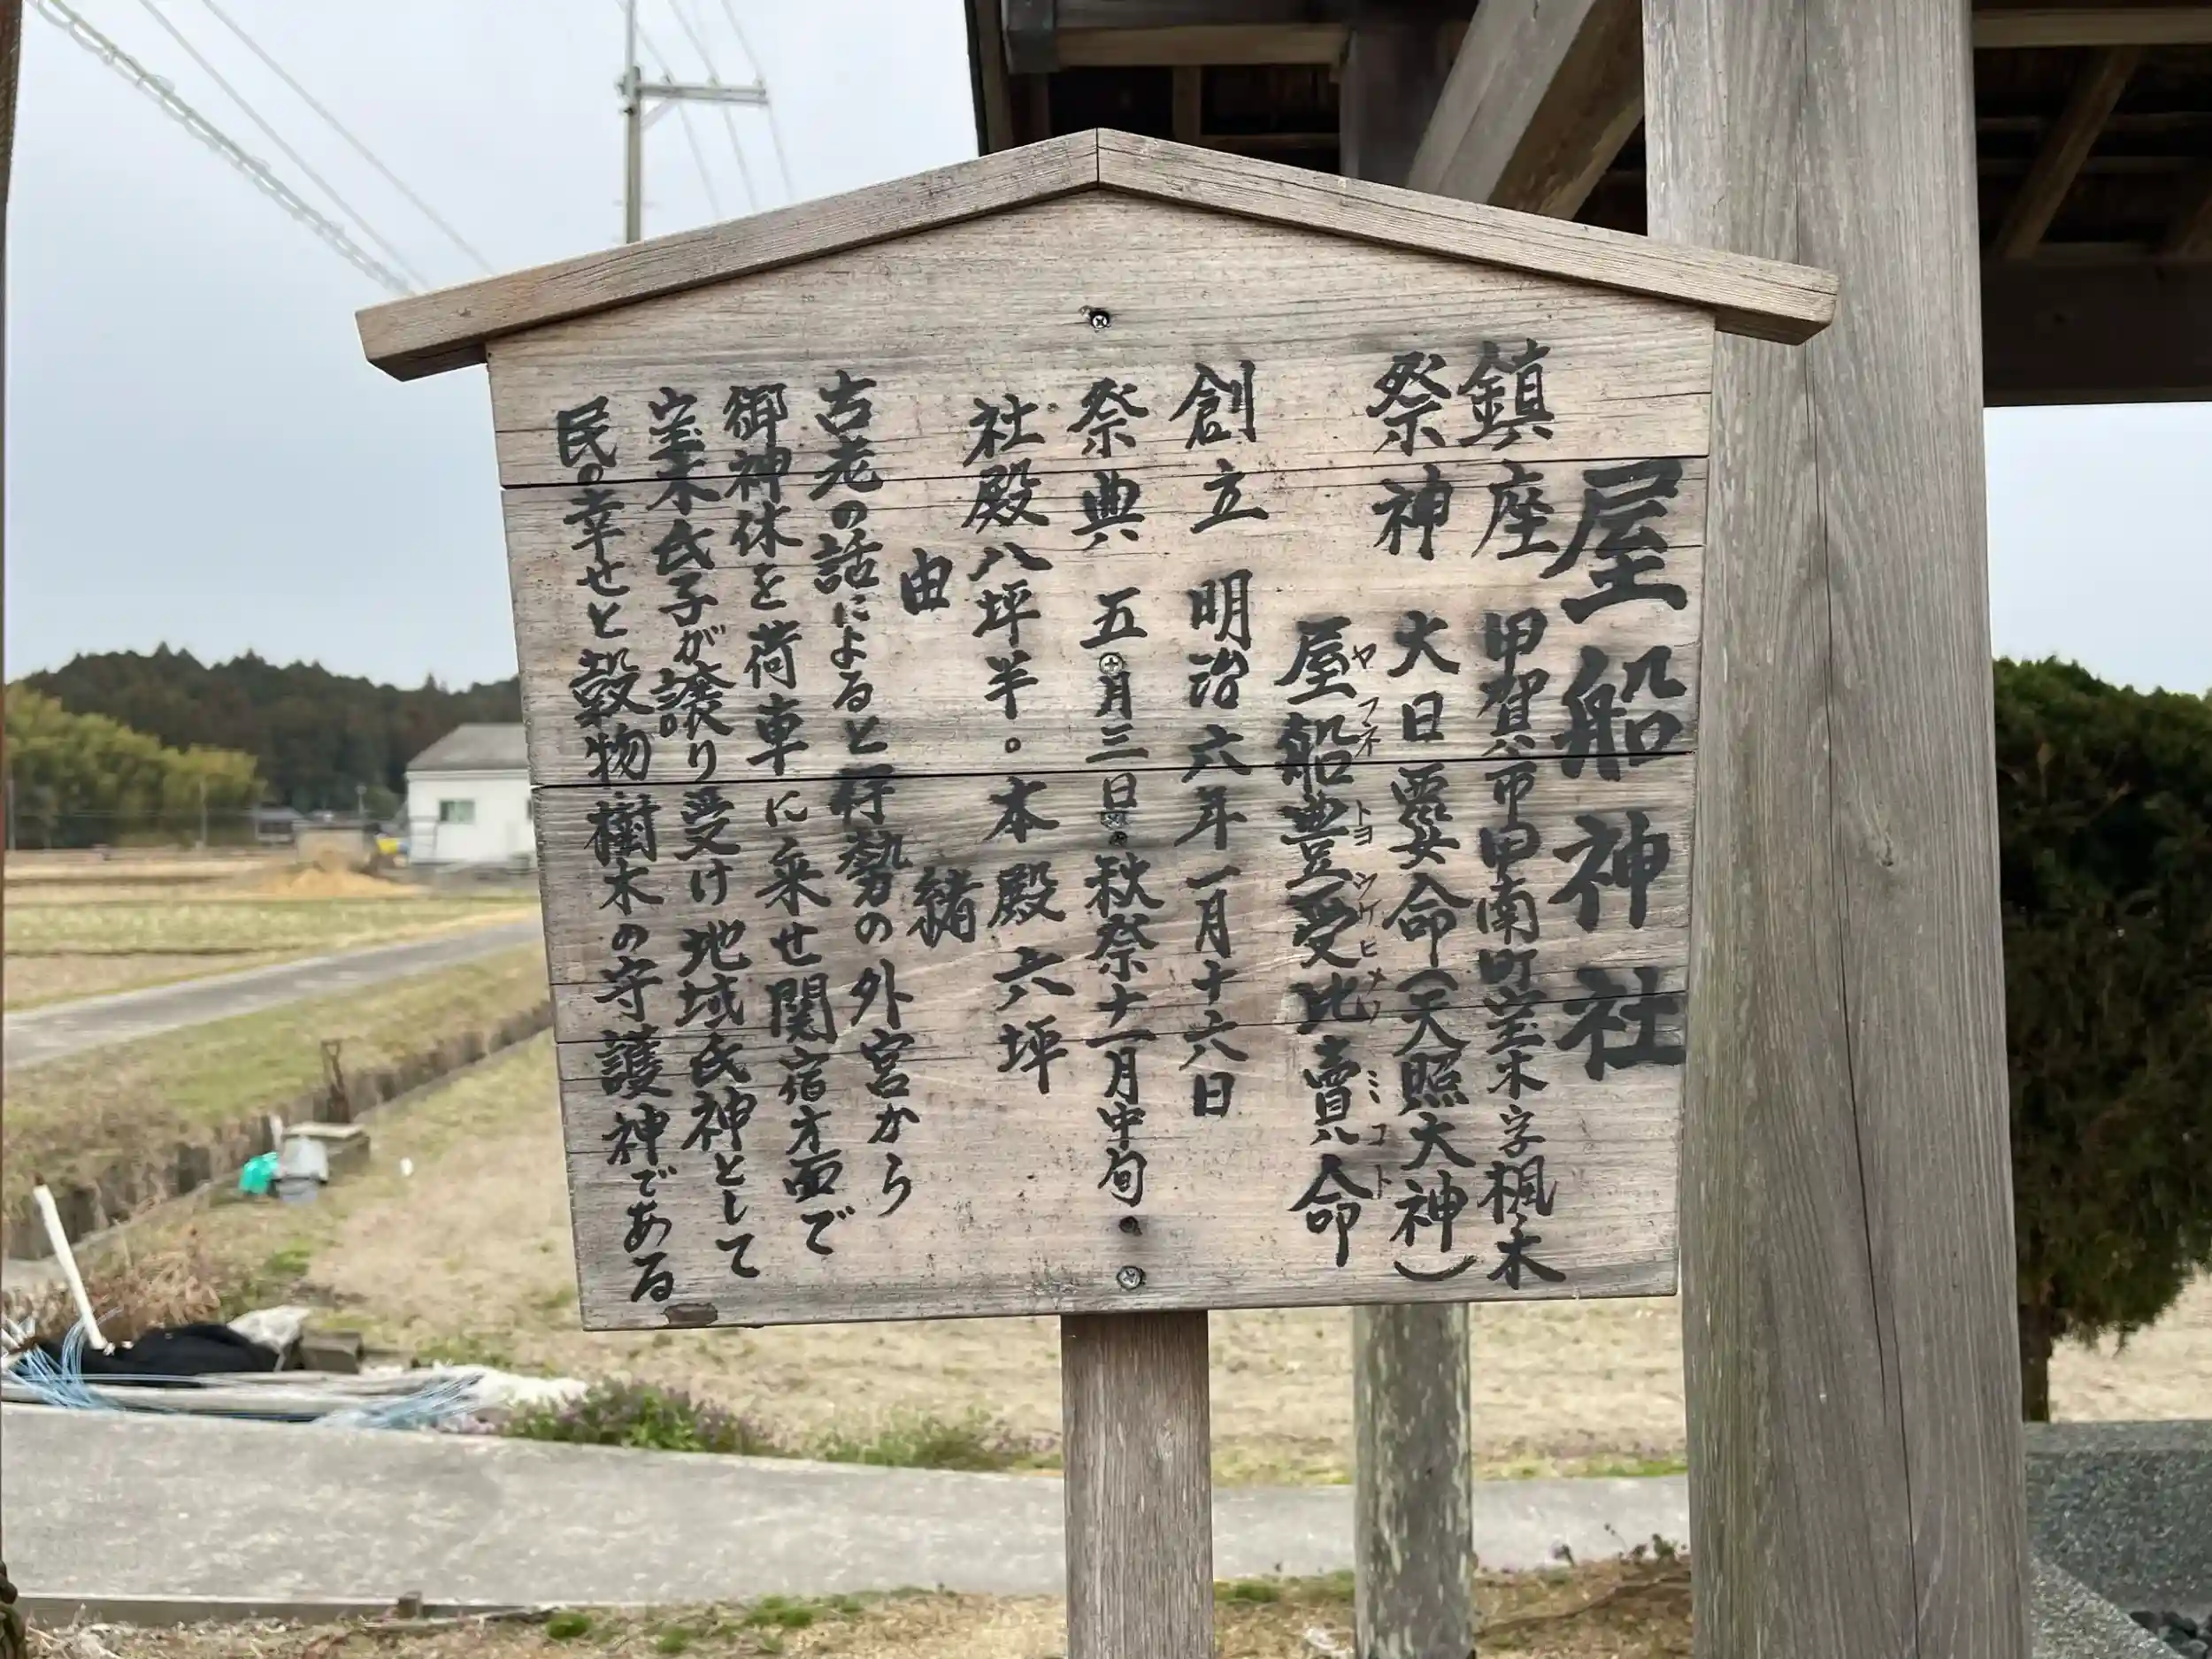 屋船神社
鎮座 甲賀市甲南町宝木字楓木
祭神 大日孁命(天照大神)
屋船豊受比賣命
ヤフネトヨツケヒメノミコト
創立 明治六年一月十六日
祭典 五月三日・秋祭十一月中旬
社殿八坪半。本殿六坪
由緒
古老の話によると行勢の外宮から
御神体を荷車に乗せ関宿方面で
宝木氏子が譲り受け地域氏神として
民の幸せと穀物樹木の守護神である